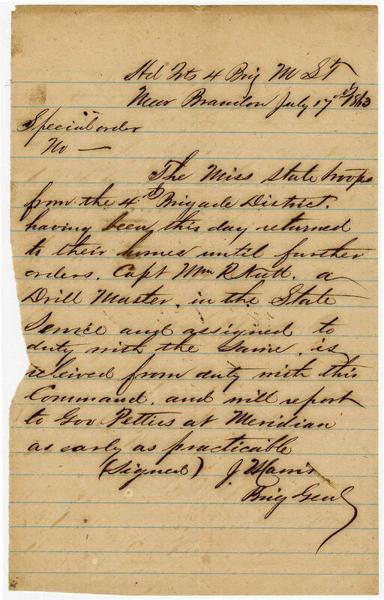 Hd Qts 4 Brig M S T
Near Brandon July 17th 1863
Special order
No —
The Miss state troops
from the 4th Brigade District.
having been this day returned
to their homes until further
orders. Capt Wm R Nutt. a
Drill Master. in the State
Service and assigned to
duty with the Same. is
releived from duty with this
Command. and will report
to Gov Pettus at Meridian
as early as practicable
(Signed) J.
Brig Genl